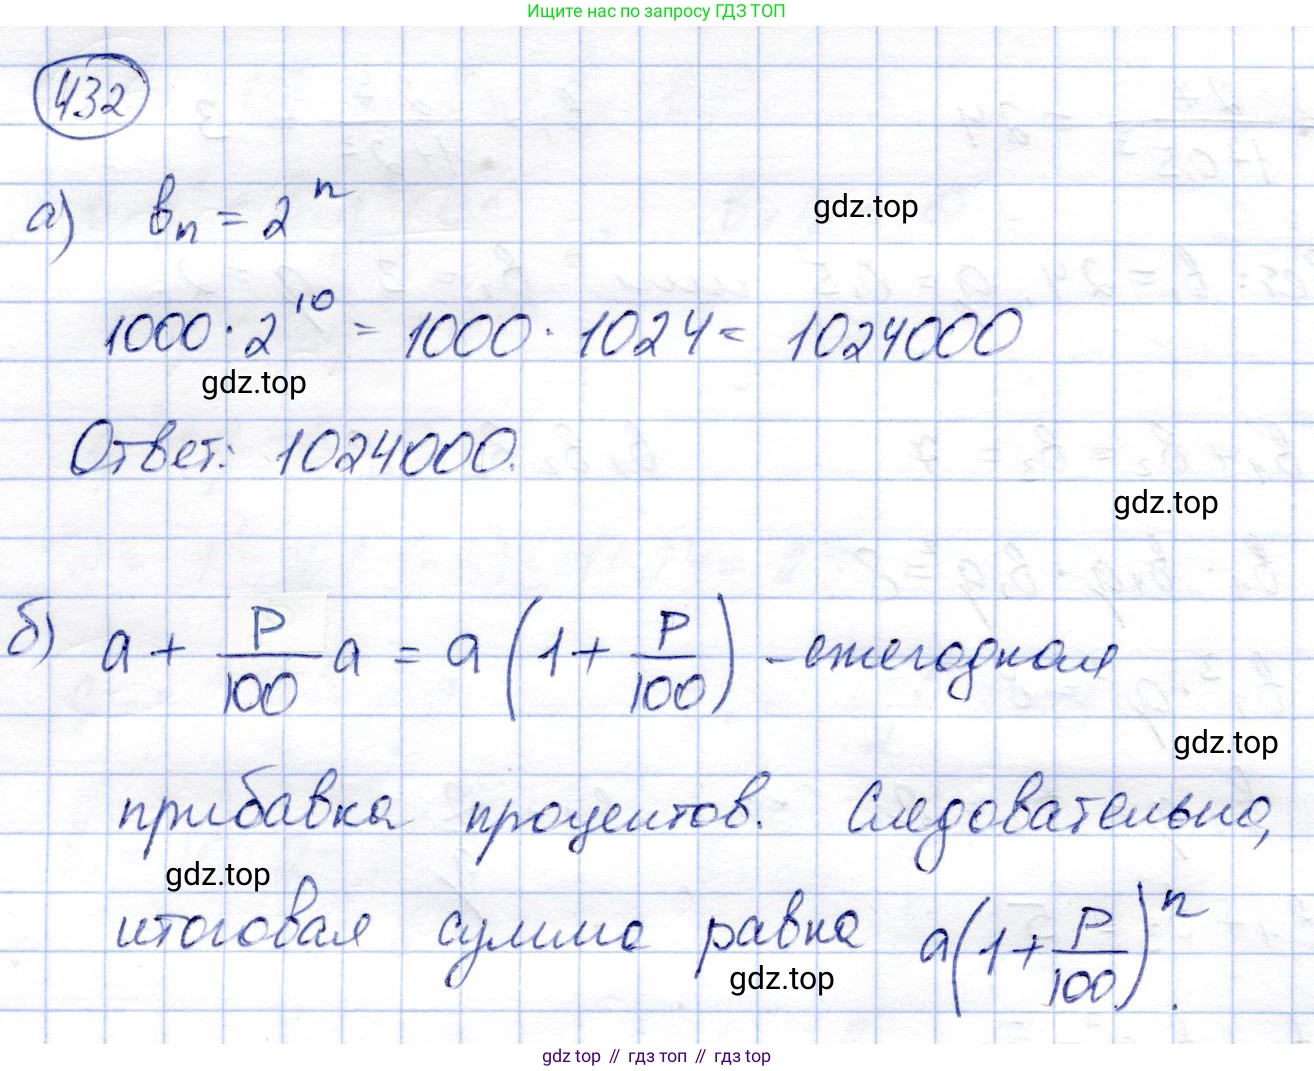 Ищите нас по запросу ГДЗ ТОП
432
а) bₙ = 2ⁿ
gdz.top
1000 · 2¹⁰ = 1000 · 1024 = 1024000
gdz.top
Ответ: 1024000.
gdz.top
б) a + P/100 a = a (1 + P/100) - ежегодная
gdz.top
прибавка процентов. Следовательно,
gdz.top
итоговая сумма равна a(1 + P/100)ⁿ.
gdz.top
gdz top // гдз топ // gdz top